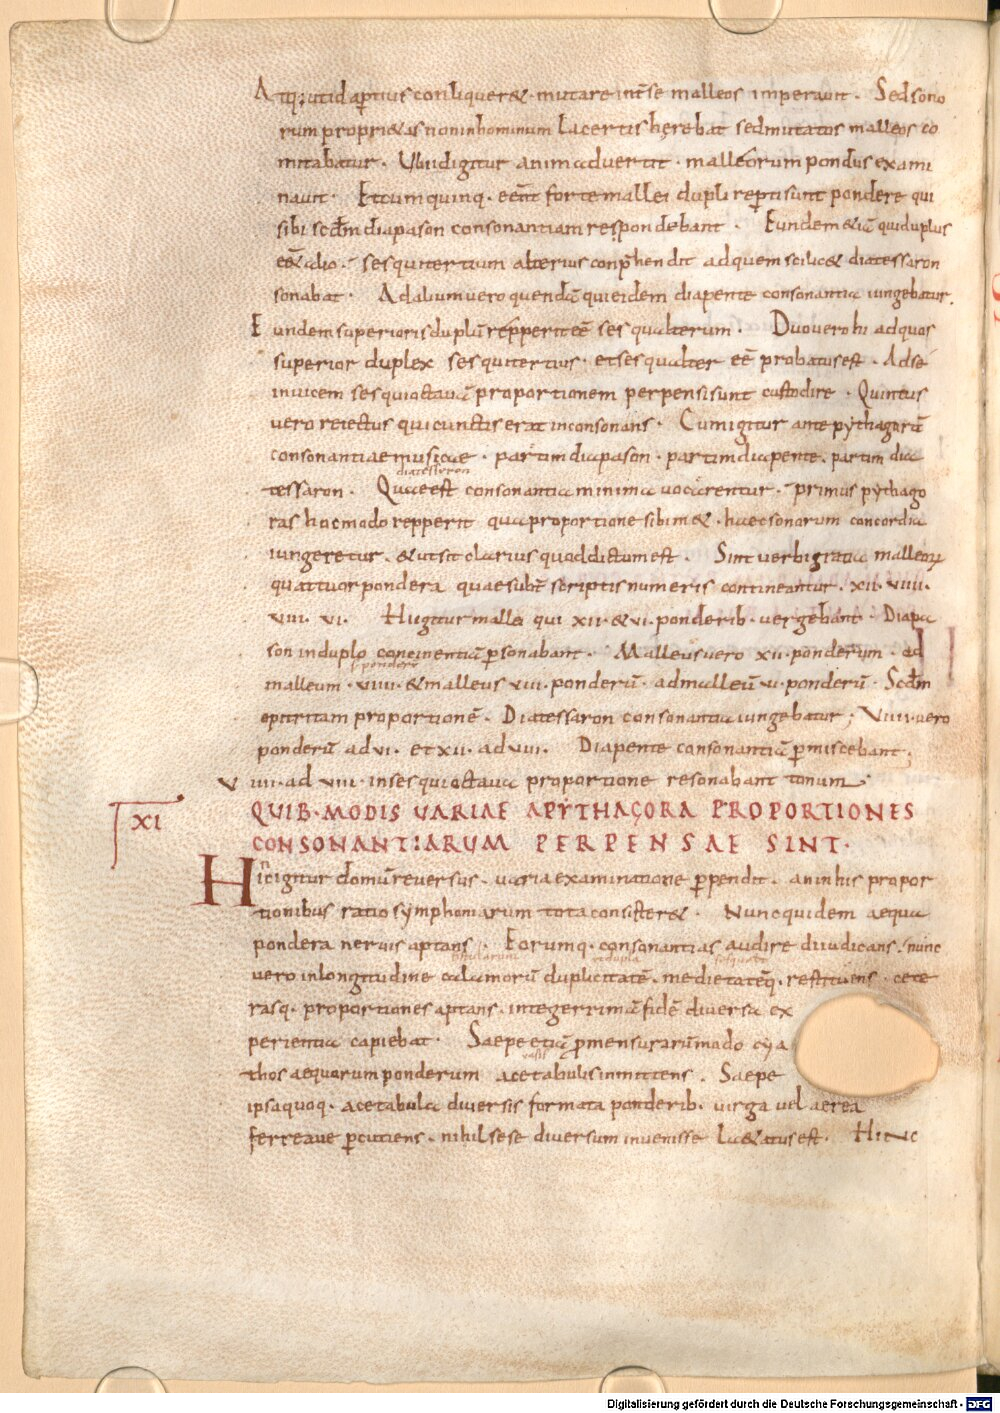 Atq; ut id apertius conliqueret · mutare int̄ se malleos imperavit · Sed sono
rum proprietas non in hominum lacertis hęrebat sed mutatos malleos co
mitabatur · Ubi id igitur animadvertit · malleorum pondus exami
navit · Et cum quinq· eēnt forte mallei dupli reperti sunt pondere qui
sibi scdm̄ diapason consonantiam respondebant · Eundem etiā qui duplus
eēt alio · sesquitertium alterius conp̄hendit ad quem scilicet diatessaron
sonabat · Ad alium vero quendā qui eidem diapente consonantia iungebatur ·
Eundem superioris duplū repperit eē sesqualterum · Duo vero hi ad quos
superior duplex sesquitertius · et sesqualter eē probatus est · Ad se
invicem sesquioctavā proportionem perpensi sunt custodire · Quintus
vero reiectus qui cunctis erat inconsonans · Cum igitur ante pythagorā
consonantiae musicae · partim diapason · partim diapente · partim dia
diatessaron
tessaron · Quae est consonantia minima vocarentur · primus pythago
ras hoc modo repperit qua proportione sibimet · haec sonorum concordia
iungeretur · & ut sit clarius quod dictum est · Sint verbi gratia malleoꝝ
quattuor pondera quae subt̄ scriptis numeris contineantur · xii · viiii ·
viii · vi · Hi igitur mallei qui xii · & vi · ponderib· vergebant · Diapa
son in duplo concinentiā personabant · Malleus vero xii · ponderum · ad
ponderū
malleum · viiii · & malleus viii · ponderū · ad malleū vi · ponderū · Scdm̄
epitritam proportionē · Diatessaron consonantia iungebatur ; Viiii · vero
ponderū ad vi · et xii · ad viii · Diapente consonantiā p̱miscebant ·
Viiii · ad viii · in sesquioctava proportione resonabant tonum ·
XI QUIB· MODIS VARIAE A PYTHAGORA PROPORTIONES
CONSONANTIARUM PERPENSAE SINT ·
Hinc igitur domū reversus · varia examinatione p̱pendit · an in his propor
tionibus ratio symphoniarum tota consisteret · Nunc quidem aequa
pondera nervis aptans · Eorumq· consonantias aure diiudicans · nunc
vero in longitudine calamorū duplicitatē · medietatēq· restituens · cete
rasq· proportiones aptans · integerrimā fidē diversa ex
perientia capiebat · Saepe etiā p̱ mensurarū modo cya
vasis
thos aequorum ponderum acetabulis inmittens · Saepe
ipsa quoq· acetabula diversis formata ponderib· virga vel aerea
ferreave p̱cutiens · nihil sese diversum invenisse laetatus est · Hinc
Digitalisierung gefördert durch die Deutsche Forschungsgemeinschaft - DFG